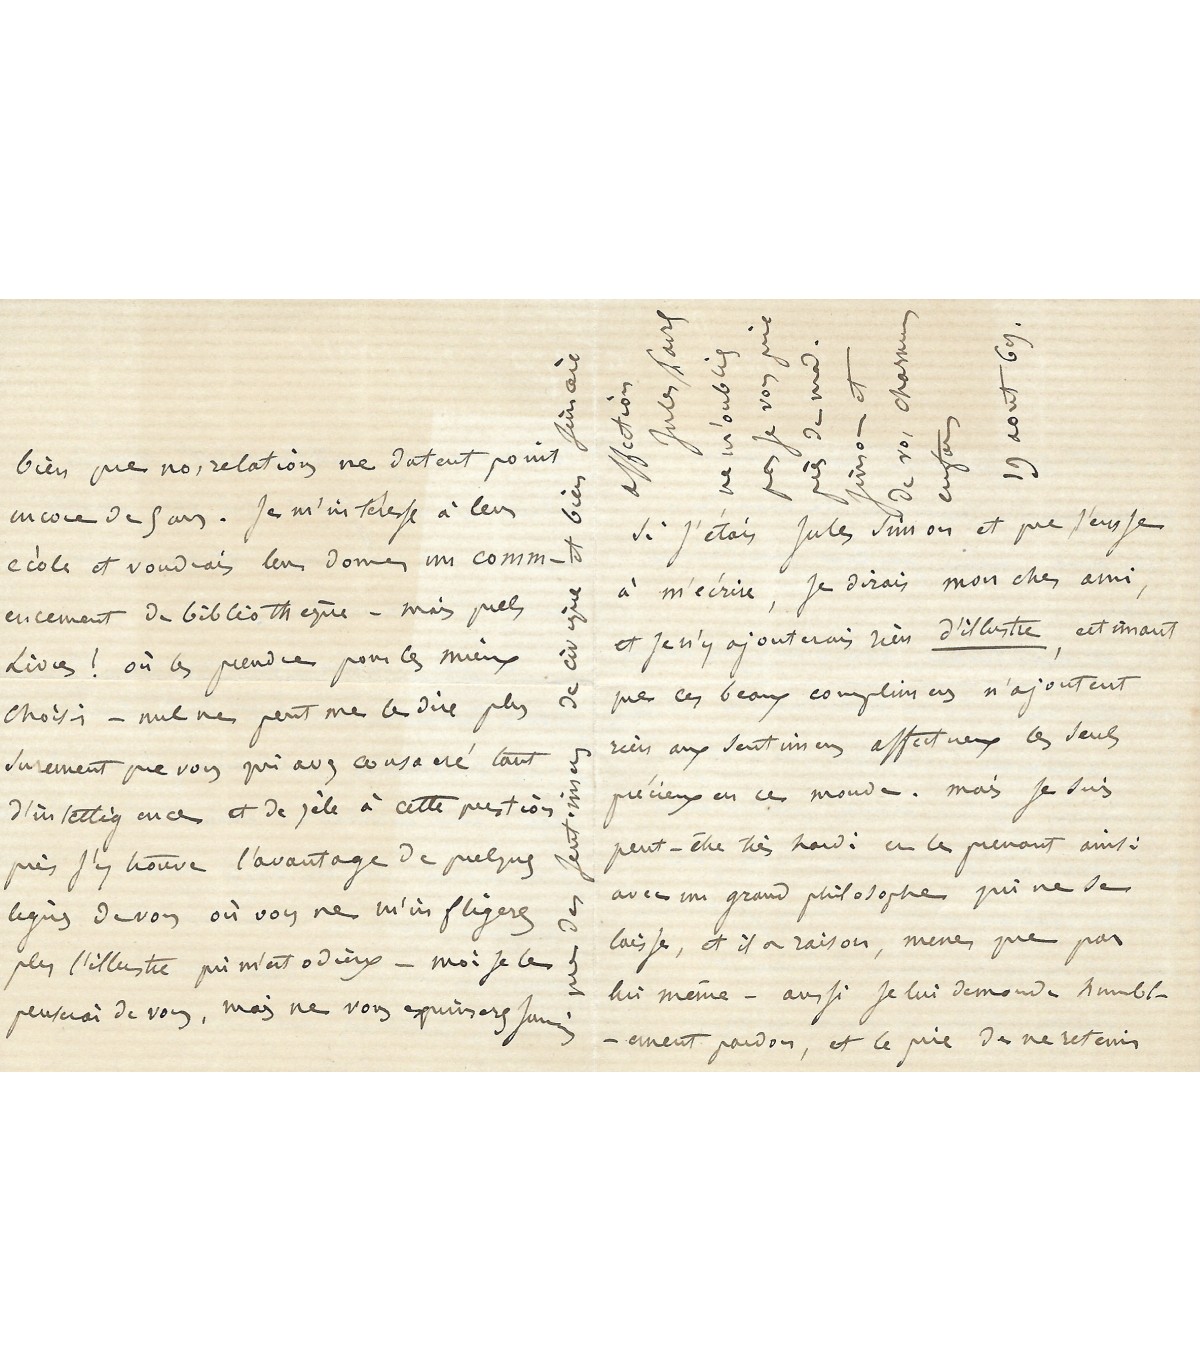 Si j'étais Jules Simon et que j'eusse
à m'écrire, je dirais mon cher ami,
et je n'y ajouterais rien d'illustre, estimant
que ces beaux complimens n'ajoutent
rien aux sentimens affectueux les seuls
précieux en ce monde. mais je suis
peut-être très hardi en le prenant ainsi
avec un grand philosophe qui ne se
laisse, et il a raison, mener que par
lui même - aussi je lui demande humbl-
-ement pardon, et le prie de ne retenir
bien que nos relations ne datent point
encore de 5 ans. Je m'intéresse à leur
école et voudrais leur donner un comm-
encement de bibliothèque - mais quels
Livres! où les prendre pour les mieux
choisir - nul ne peut me le dire plus
surement que vous qui avez consacré tant
d'intelligence et de zèle à cette question
puis j'y trouve l'avantage de quelques
lignes de vous où vous ne m'infligerez
plus l'illustre qui m'est odieux - moi je le
penserai de vous, mais ne vous exprimerez jamais
que des sentimens de civique et bien sincère
affection
Jules Favre
ne m'oubliez
pas je vous prie
près de mad.
Simon et
de vos charmans
enfans
19 aout 69.